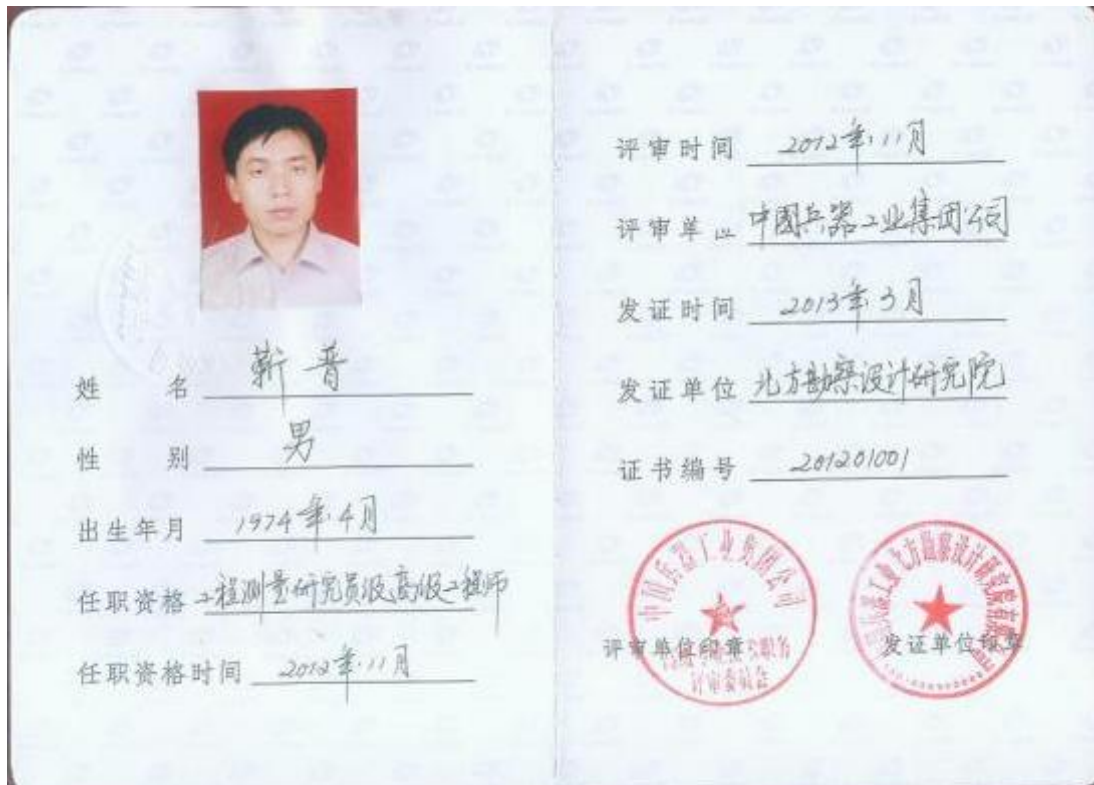 姓 名 靳普
性 别 男
出生年月 1974年4月
任职资格 工程测量研究员级高级工程师
任职资格时间 2012年11月
评审时间 2012年11月
评审单位 中国兵器工业集团公司
发证时间 2013年3月
发证单位 北方勘察设计研究院
证书编号 201201001
中国兵器工业集团公司
评审单位印章
评审委员会
发证单位印章